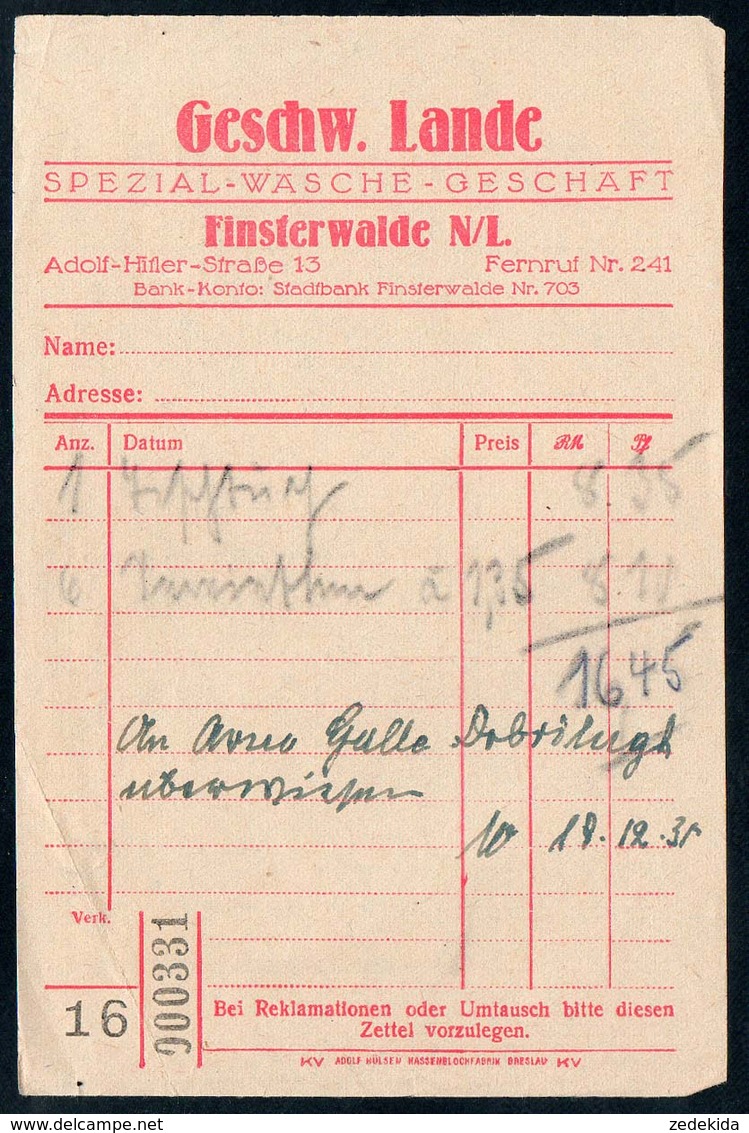 Geschw. Lande
SPEZIAL-WÄSCHE-GESCHÄFT
Finsterwalde N/L.
Adolf-Hitler-Straße 13 Fernruf Nr. 241
Bank-Konto: Stadtbank Finsterwalde Nr. 703
Name:
Adresse:
Anz. Datum Preis RM Pf
1 Tischtuch 8 35
6 à 1,35 8 10
16 45
An Arno Galle Dobrilugk
überwiesen
18.12.35
Verk.
16
000331
Bei Reklamationen oder Umtausch bitte diesen
Zettel vorzulegen.
KV ADOLF HÜLSEN KASSENBLOCKFABRIK BRESLAU KV
zedekida